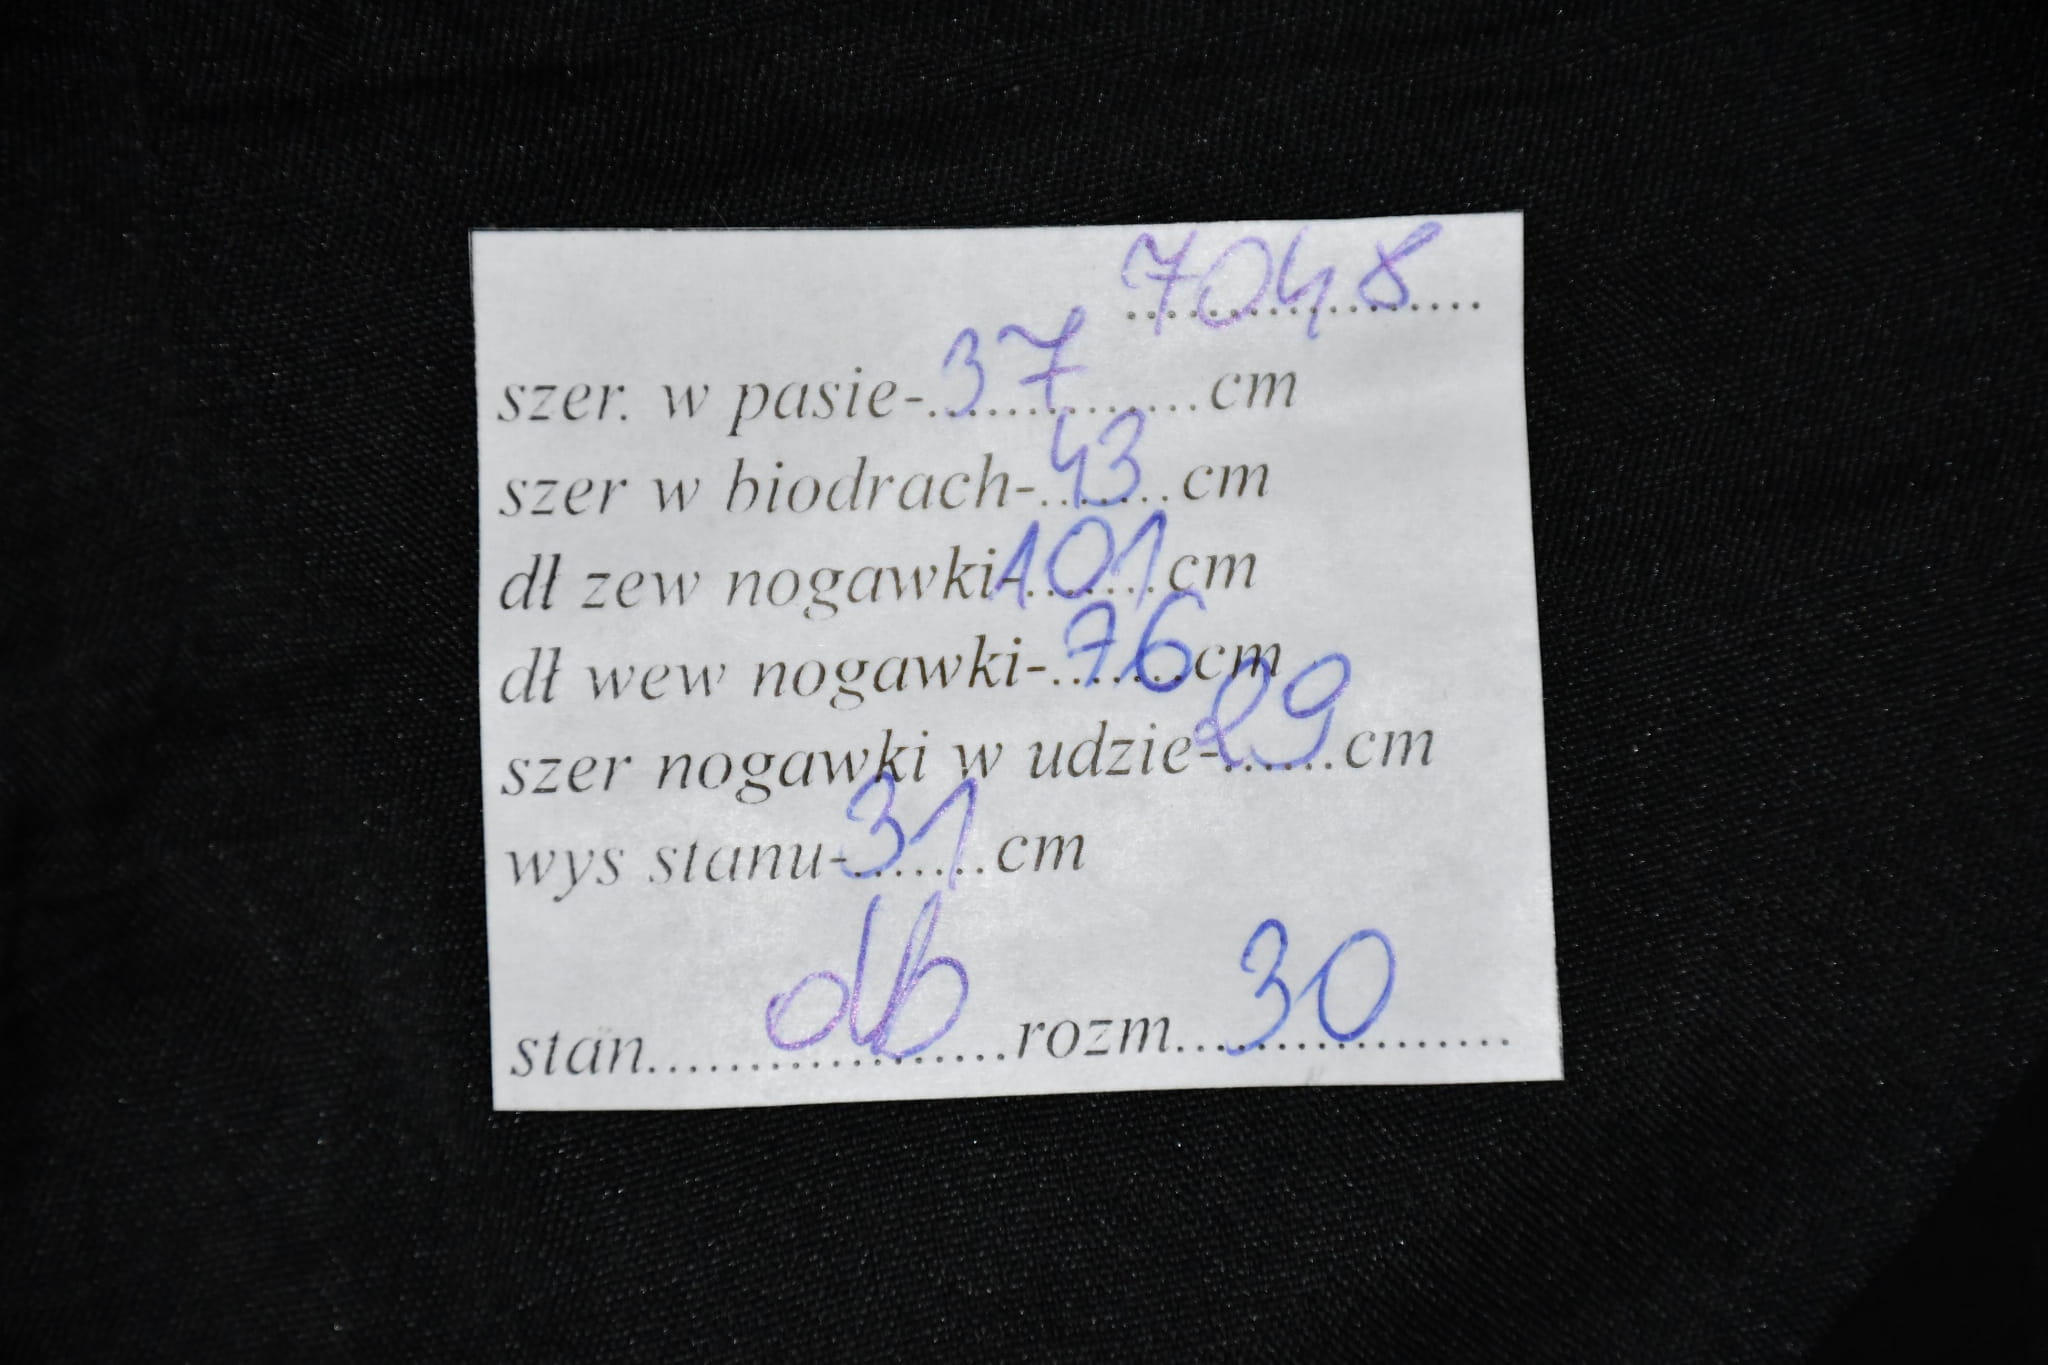 7048
szer. w pasie-37cm
szer w biodrach-43cm
dł zew nogawki-101cm
dł wew nogawki-76cm
szer nogawki w udzie-29cm
wys stanu-31cm
stan db rozm 30